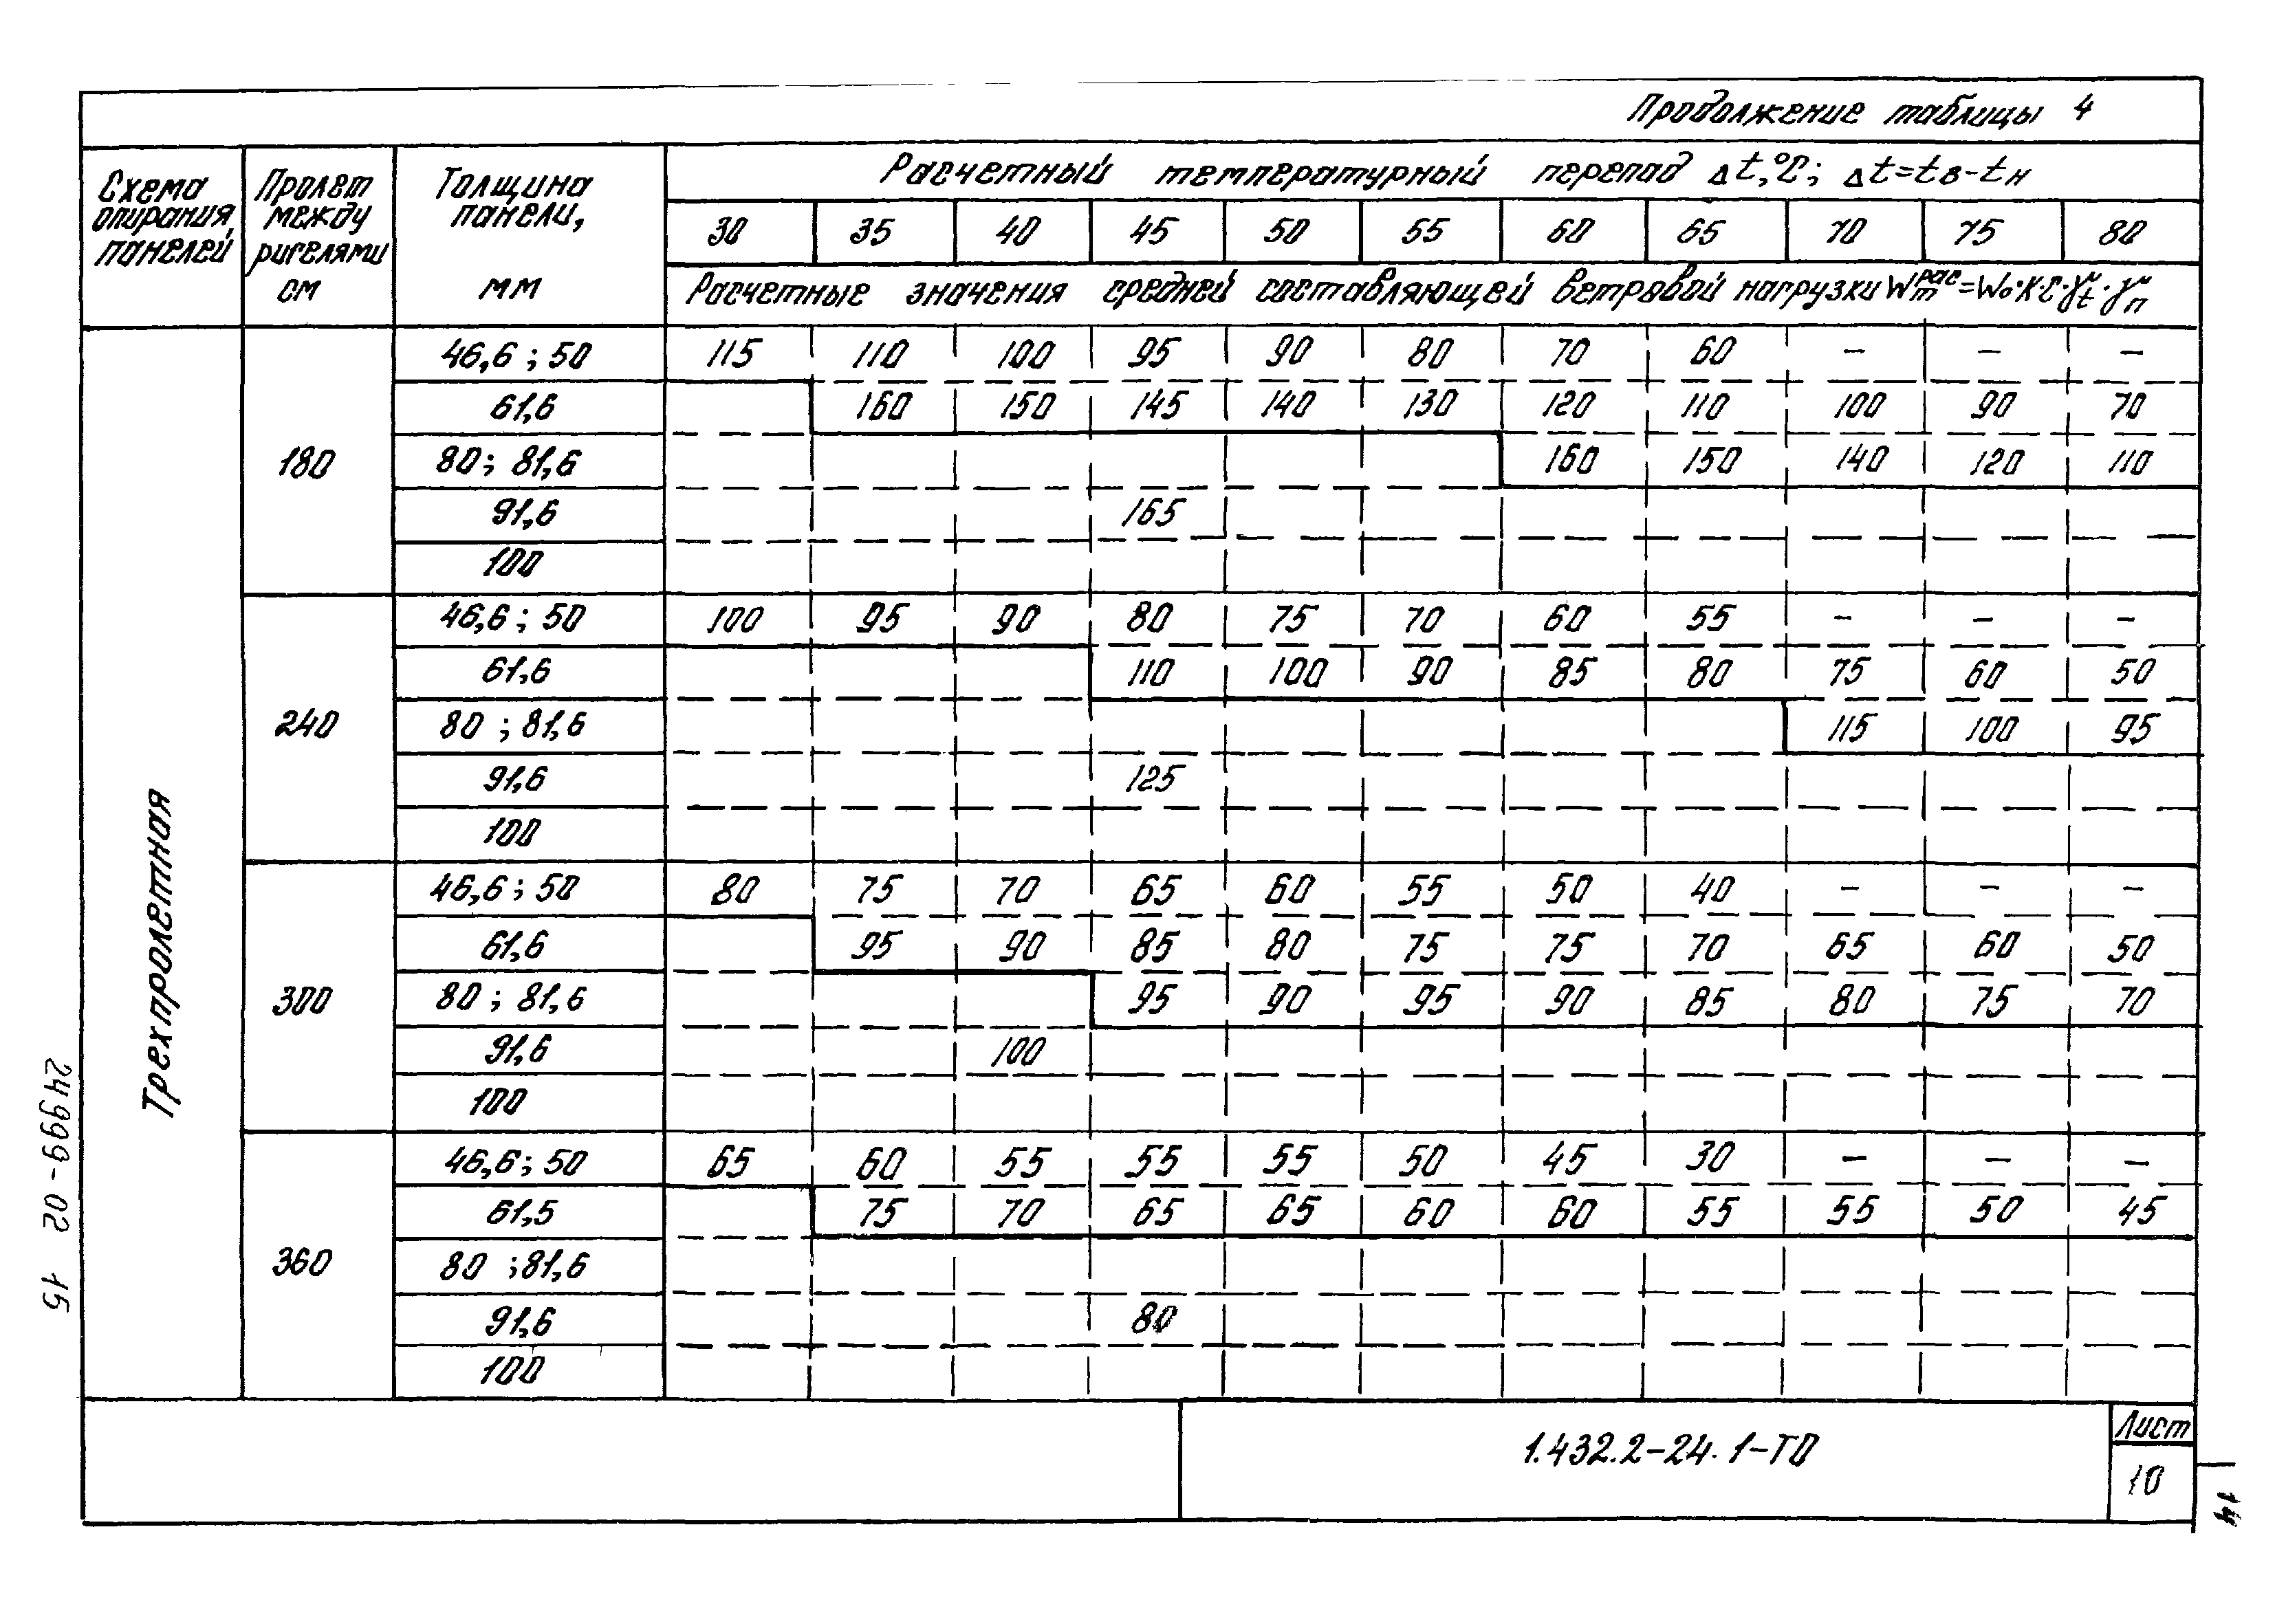 Продолжение таблицы 4
Схема опирания, панелей
Пролет между ригелями см
Толщина панели, мм
Расчетный температурный перепад Δt,°C; Δt=tв-tн
30 35 40 45 50 55 60 65 70 75 80
Расчетные значения средней составляющей ветровой нагрузки
Трехпролетная
180
46,6 ; 50 115 110 100 95 90 80 70 60 – – –
61,6 160 150 145 140 130 120 110 100 90 70
80; 81,6 160 150 140 120 110
91,6 165
100
240
46,6 ; 50 100 95 90 80 75 70 60 55 – – –
61,6 110 100 90 85 80 75 60 50
80 ; 81,6 115 100 95
91,6 125
100
300
46,6 ; 50 80 75 70 65 60 55 50 40 – – –
61,6 95 90 85 80 75 75 70 65 60 50
80 ; 81,6 95 90 95 90 85 80 75 70
91,6 100
100
360
46,6; 50 65 60 55 55 55 50 45 30 – – –
61,5 75 70 65 65 60 60 55 55 50 45
80 ; 81,6
91,6 80
100
1.432.2-24.1-ТО
Лист
10
24999-02 15
14